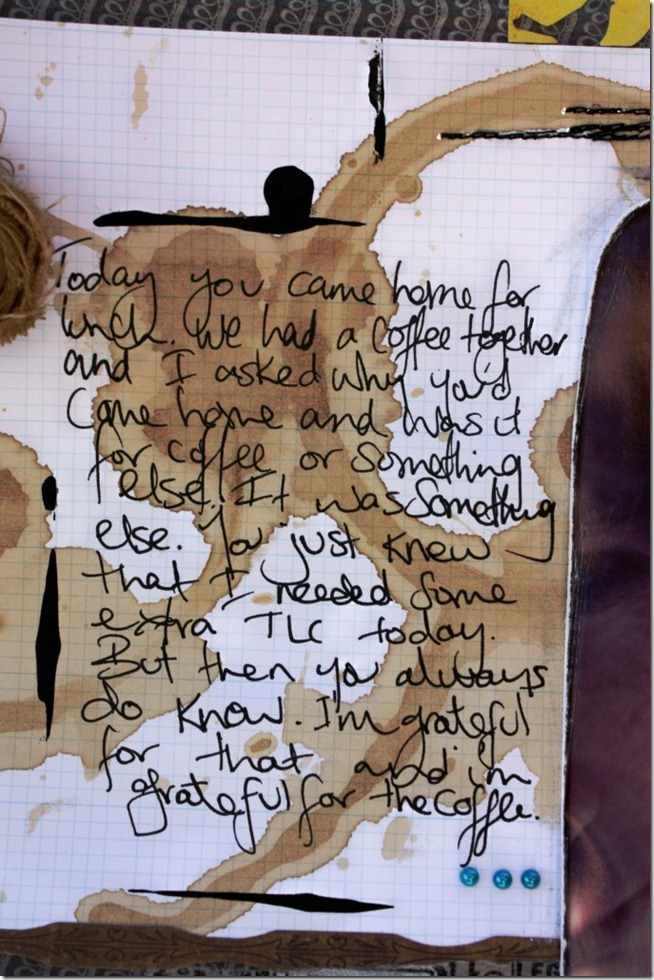 Today you came home for
lunch. We had a coffee together
and I asked why you'd
Come home and was it
for coffee or something
else. It was something
else. You just knew
that I needed some
extra TLC today.
But then you always
do know. I'm grateful
for that and i'm
grateful for the coffee.